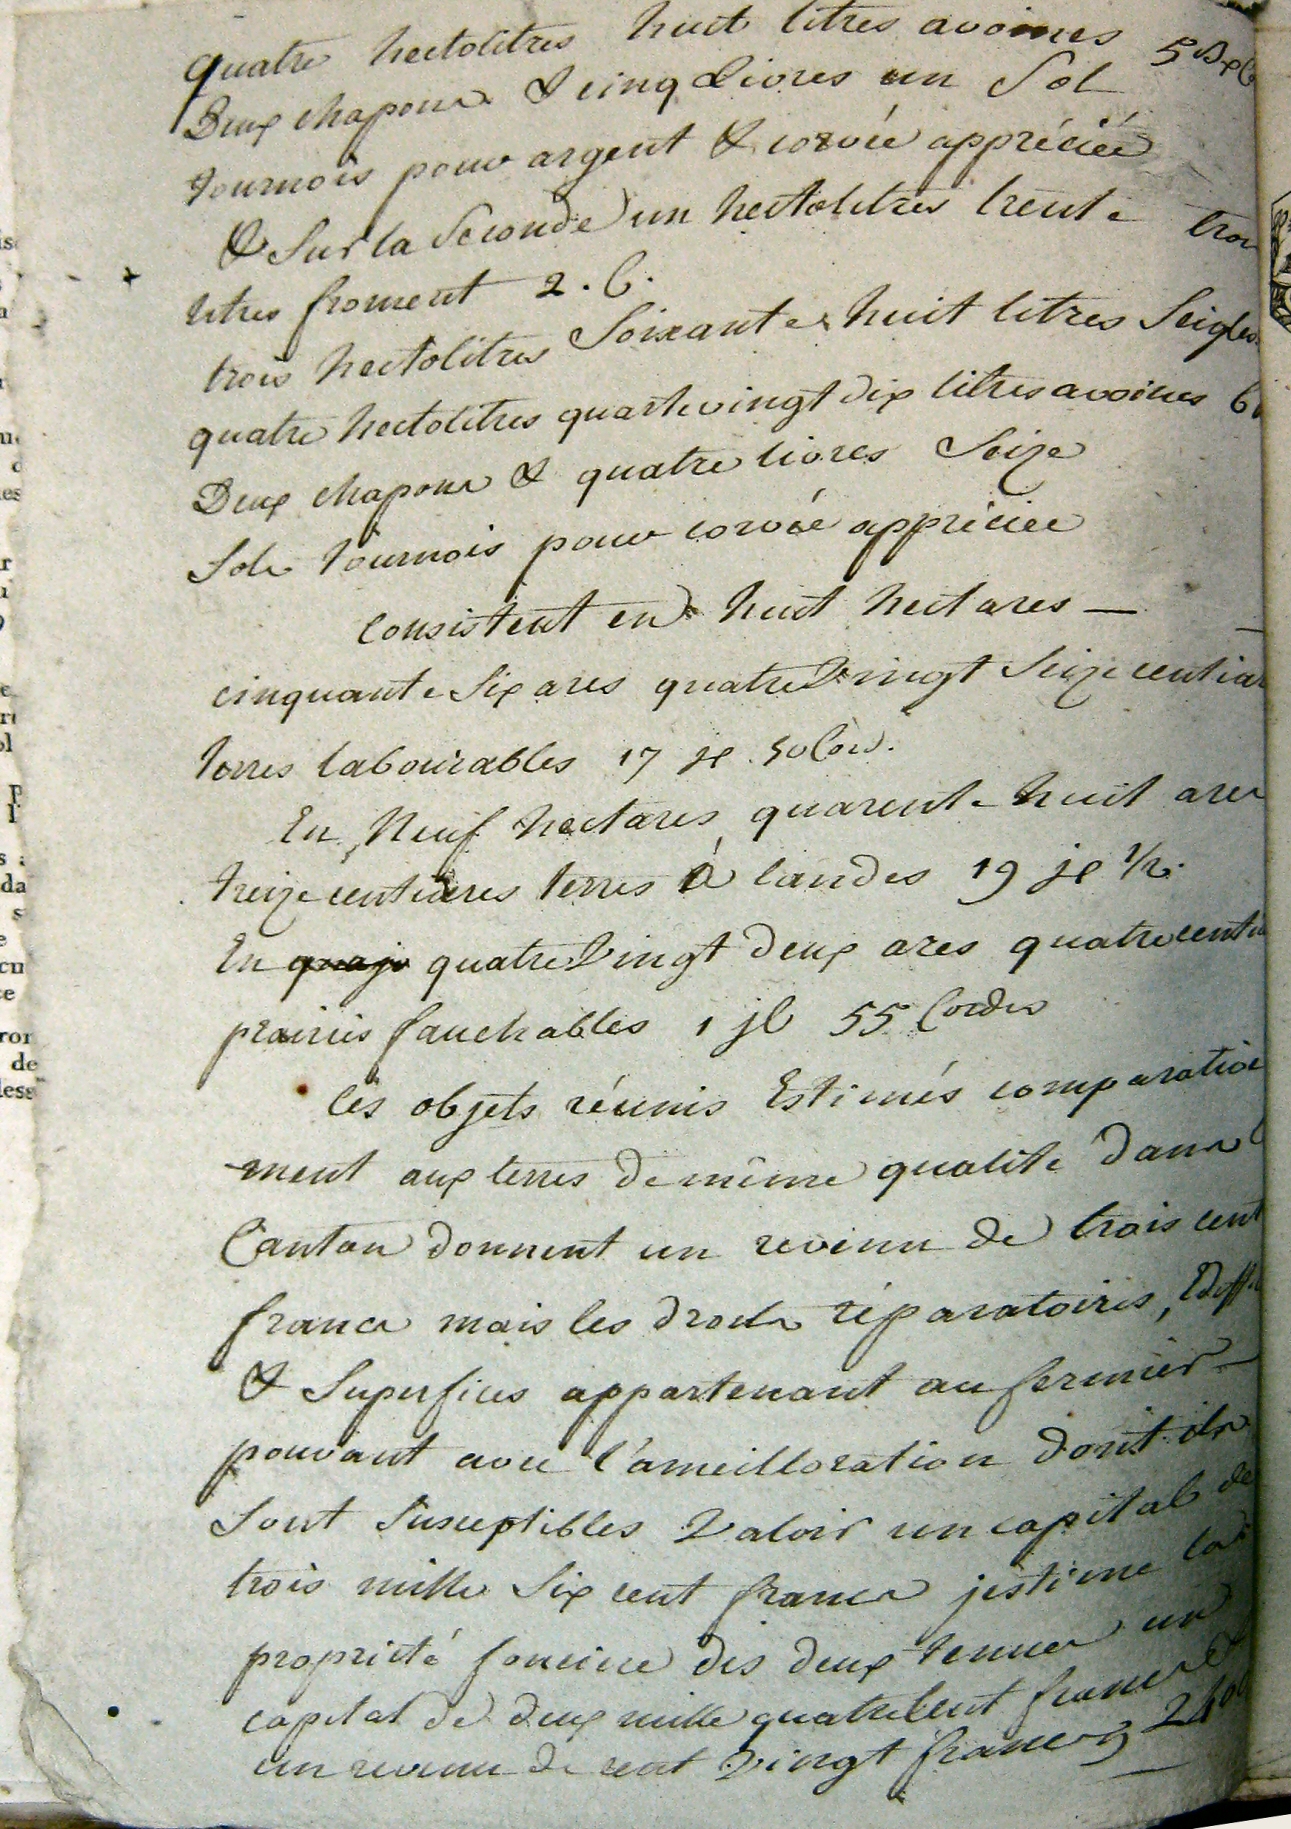 quatre hectolitres huit litres avoines 5
Deux chapons & cinq Livres un Sol
tournois pour argent & corvée appréciée
& Sur la Seconde un hectolitres trente trois
litres froment 2. b.
trois hectolitres Soixante huit litres Seigles
quatre hectolitres quatrevingt dix litres avoines 6
Deux chapons & quatre livres Seize
Sols tournois pour corvée appréciée
consistent en huit hectares —
cinquante Six ares quatre Vingt Seize centiar
terres labourables 17 jx 50 Cor.
En Neuf hectares quarente huit ares
treize centiares terres à landes 19 jx 1/2.
En quatre Vingt deux ares quatre centia
prairies fauchables 1 jl 55 Cordes
Ces objets réunis Estimés comparative
ment aux terres de même qualité dans l
Canton donnent un revenu de trois cent
francs mais les droits réparatoires, Ediffi
& Superficies appartenant au fermier
pouvant avec l'ameilloration dont ils
Sont Susceptibles Valoir un capital de
trois mille Six cent francs j'estime la
propriété fonciere des deux tenues un
capital de deux mille quatre Cent francs &
un revenu de cent Vingt francs 2400